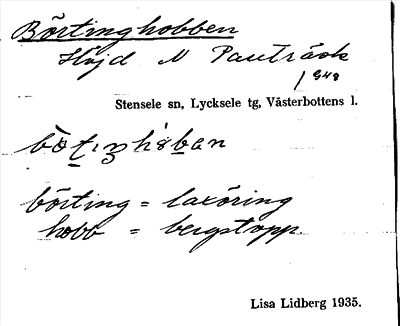 Börtinghobben
Höjd N Pauträsk
1848
Stensele sn, Lycksele tg, Västerbottens l.
börting = laxöring
hobb = bergstopp.
Lisa Lidberg 1935.